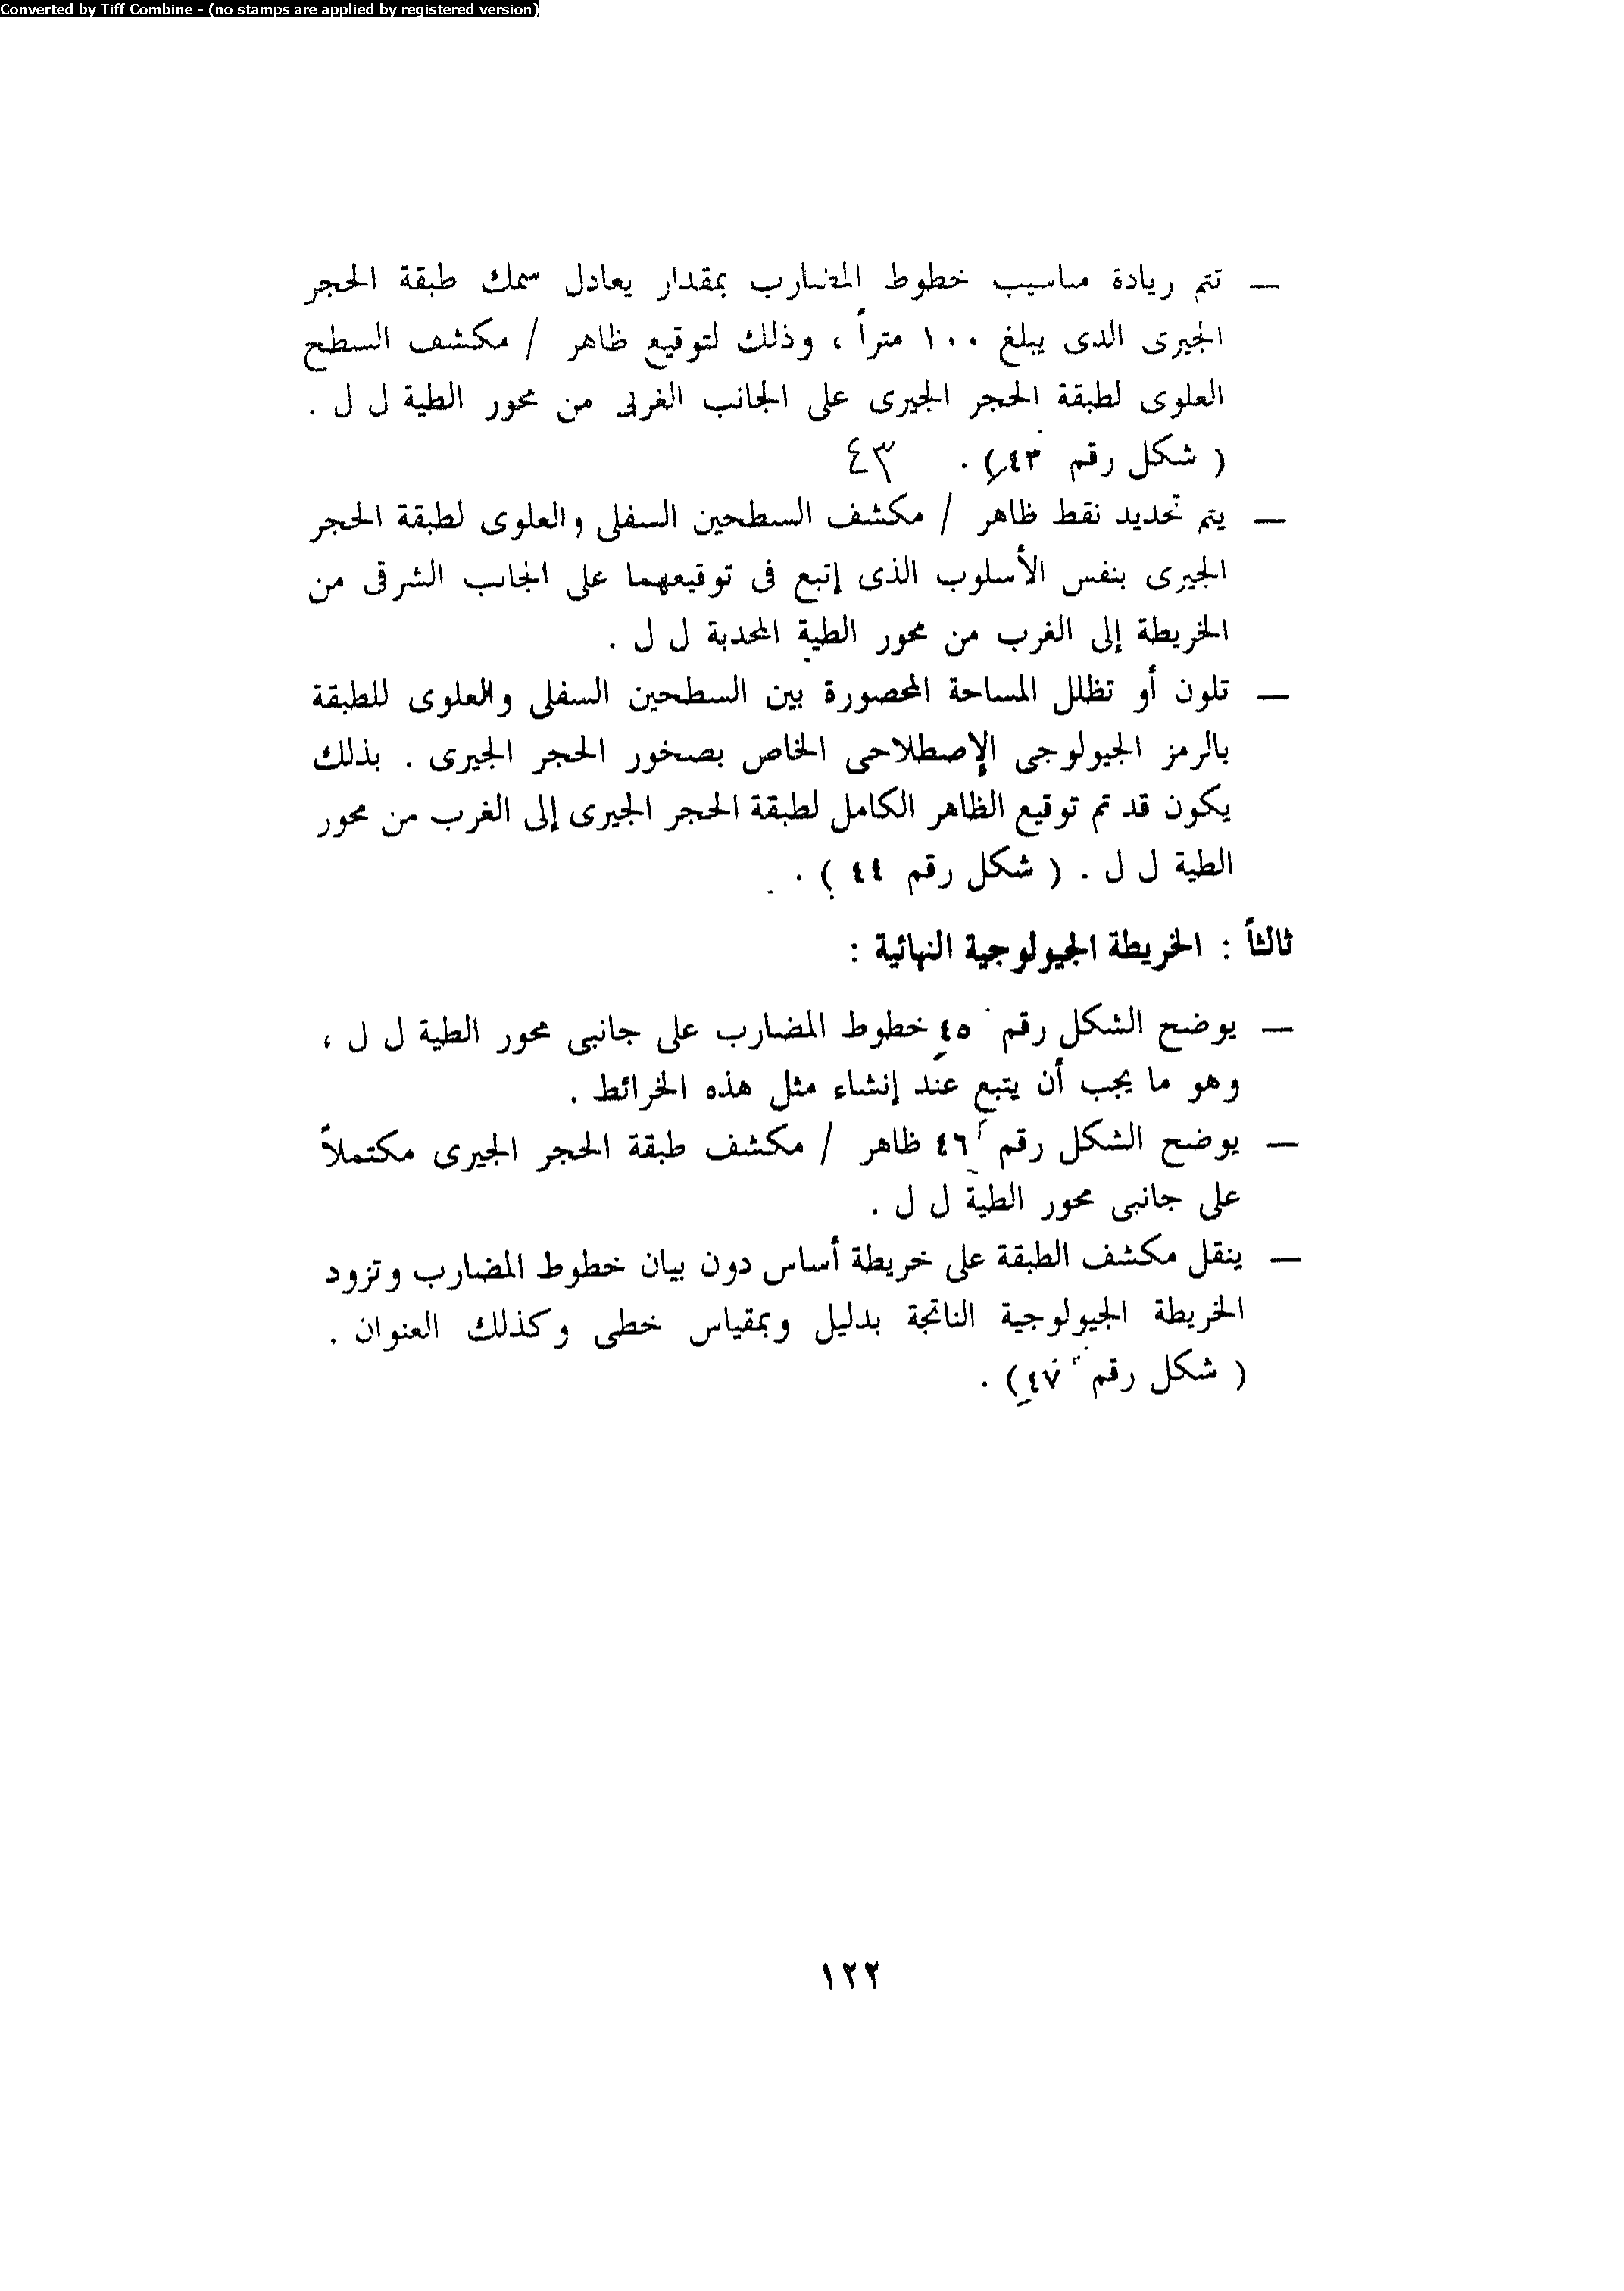 Converted by Tiff Combine - (no stamps are applied by registered version)
— تتم زيادة مناسيب خطوط المضارب بمقدار يعادل سمك طبقة الحجر
الجيرى الذى يبلغ ١٠٠ متراً ، وذلك لتوقيع ظاهر / مكشف السطح
العلوى لطبقة الحجر الجيرى على الجانب الغربى من محور الطية ل ل .
( شكل رقم ٤٣ ) . ٤٣
— يتم تحديد نقط ظاهر / مكشف السطحين السفلى والعلوى لطبقة الحجر
الجيرى بنفس الأسلوب الذى إتبع فى توقيعهما على الجانب الشرقى من
الخريطة إلى الغرب من محور الطية المحدبة ل ل .
— تلون أو تظلل المساحة المحصورة بين السطحين السفلى والعلوى للطبقة
بالرمز الجيولوجى الإصطلاحى الخاص بصخور الحجر الجيرى . بذلك
يكون قد تم توقيع الظاهر الكامل لطبقة الحجر الجيرى إلى الغرب من محور
الطية ل ل . ( شكل رقم ٤٤ ) .
ثالثاً : الخريطة الجيولوجية النهائية :
— يوضح الشكل رقم ٤٥ خطوط المضارب على جانبى محور الطية ل ل ،
وهو ما يجب أن يتبع عند إنشاء مثل هذه الخرائط .
— يوضح الشكل رقم ٤٦ ظاهر / مكشف طبقة الحجر الجيرى مكتملاً
على جانبى محور الطية ل ل .
— ينقل مكشف الطبقة على خريطة أساس دون بيان خطوط المضارب وتزود
الخريطة الجيولوجية الناتجة بدليل وبمقياس خطى وكذلك العنوان .
( شكل رقم ٤٧ ) .
١٢٢